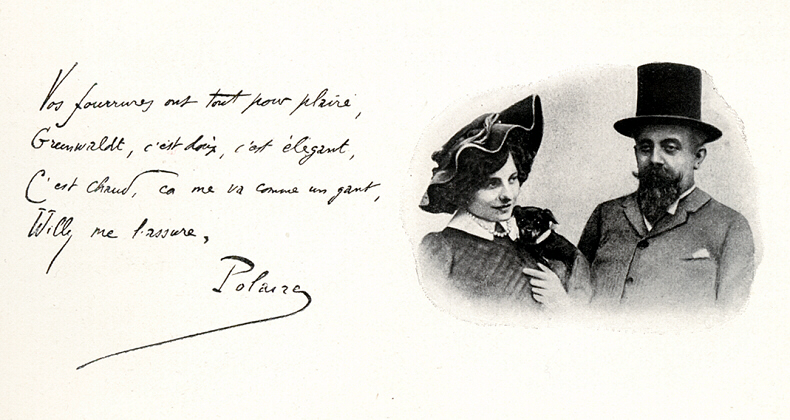 Vos fourrures ont tout pour plaire,
Grunwaldt, c'est doux, c'est élégant,
C'est chaud, ca me va comme un gant,
Willy me l'assure,
Polaire